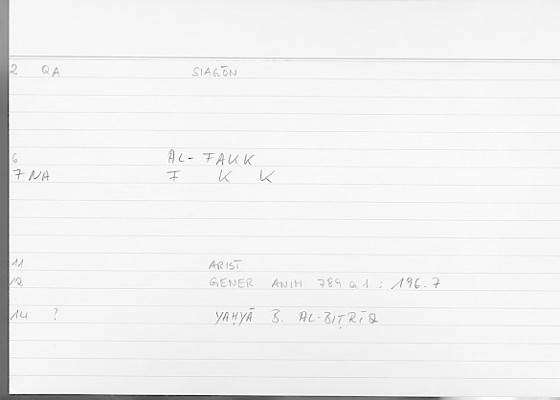 2 QA SIAGŌN
6 AL-FAKK
7 NA F K K
11 ARIST
12 GENER ANIM 789 a 1 : 196.7
14 ? YAḤYĀ B. AL-BIṬRĪQ